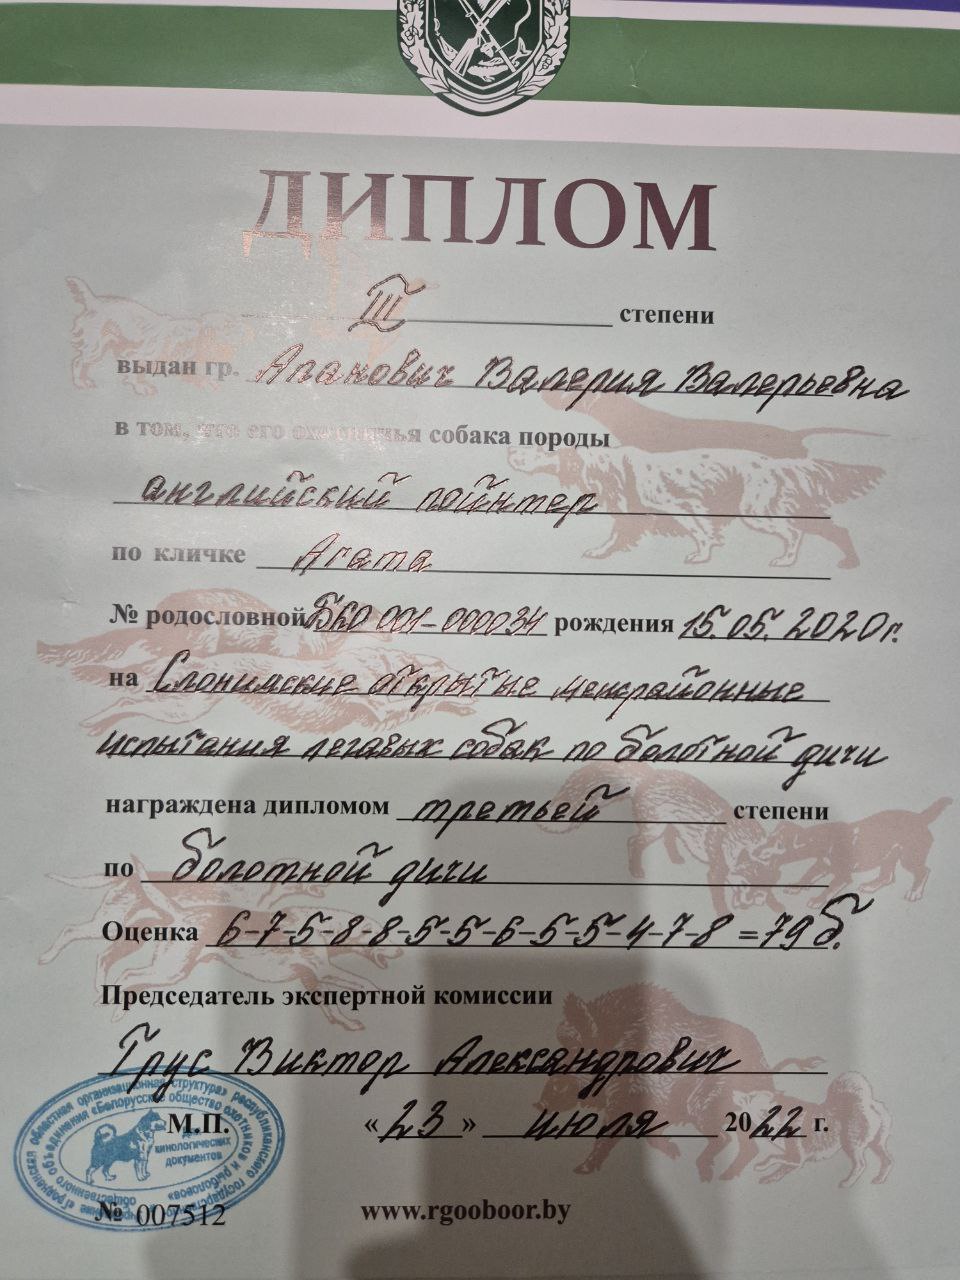 ДИПЛОМ
III степени
выдан гр. Апанович Валерия Валерьевна
в том, что его охотничья собака породы
английский пойнтер
по кличке Агата
№ родословной БКО 001-000034 рождения 15.05.2020г.
на Слонимские открытые межрайонные
испытания легавых собак по болотной дичи
награждена дипломом третьей степени
по болотной дичи
Оценка 6-7-5-8-8-5-5-6-5-5-4-7-8 =79 б.
Председатель экспертной комиссии
Грус Виктор Александрович
М.П. « 23 » июля 2022 г.
кинологических
документов
№ 007512 www.rgooboor.by